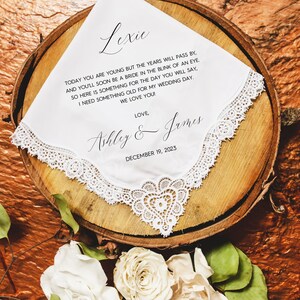 Lexie
TODAY YOU ARE YOUNG BUT THE YEARS WILL PASS BY,
AND YOU'LL SOON BE A BRIDE IN THE BLINK OF AN EYE.
SO HERE IS SOMETHING FOR THE DAY YOU WILL SAY,
I NEED SOMETHING OLD FOR MY WEDDING DAY
WE LOVE YOU!
LOVE,
Ashley & James
DECEMBER 19, 2023